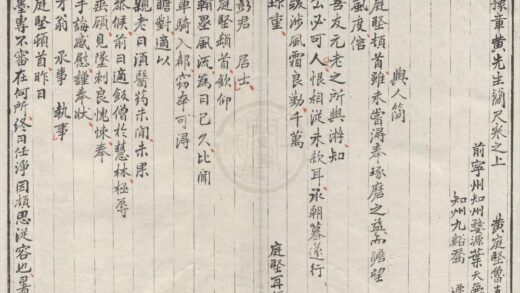 豫章黄先生簡尺卷之上
黄庭堅魯直
前寧州知州婺源葉天爵
知州九谿喬
與人簡
庭堅頓首雖未嘗得奉琢磨之益而瞻望
風度信
善友元老之所與游知
公必可人恨相從未款耳承朝暮遂行
跋涉風霜良勤千萬
珍重
庭堅再
彭君居士
庭堅頓首欽仰
翰墨風流爲日已久比聞
車騎入都竊幸可得
瞻對適以
親老日須醫藥未閒未果
參候前日適飯僧於慧林極辱
垂顧見墜刺良愧悚奉
手誨感慰謹奉狀
才翁承事執事
庭堅頓首昨日
墨專不審在何所終日任淨因頗思從容也暑